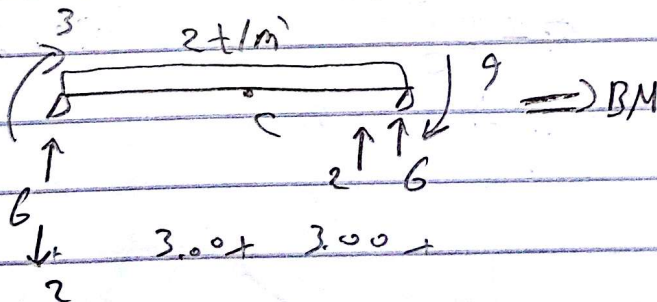 3
2 t/m'
9 => BM
C
2 6
6
3.00 3.00
2